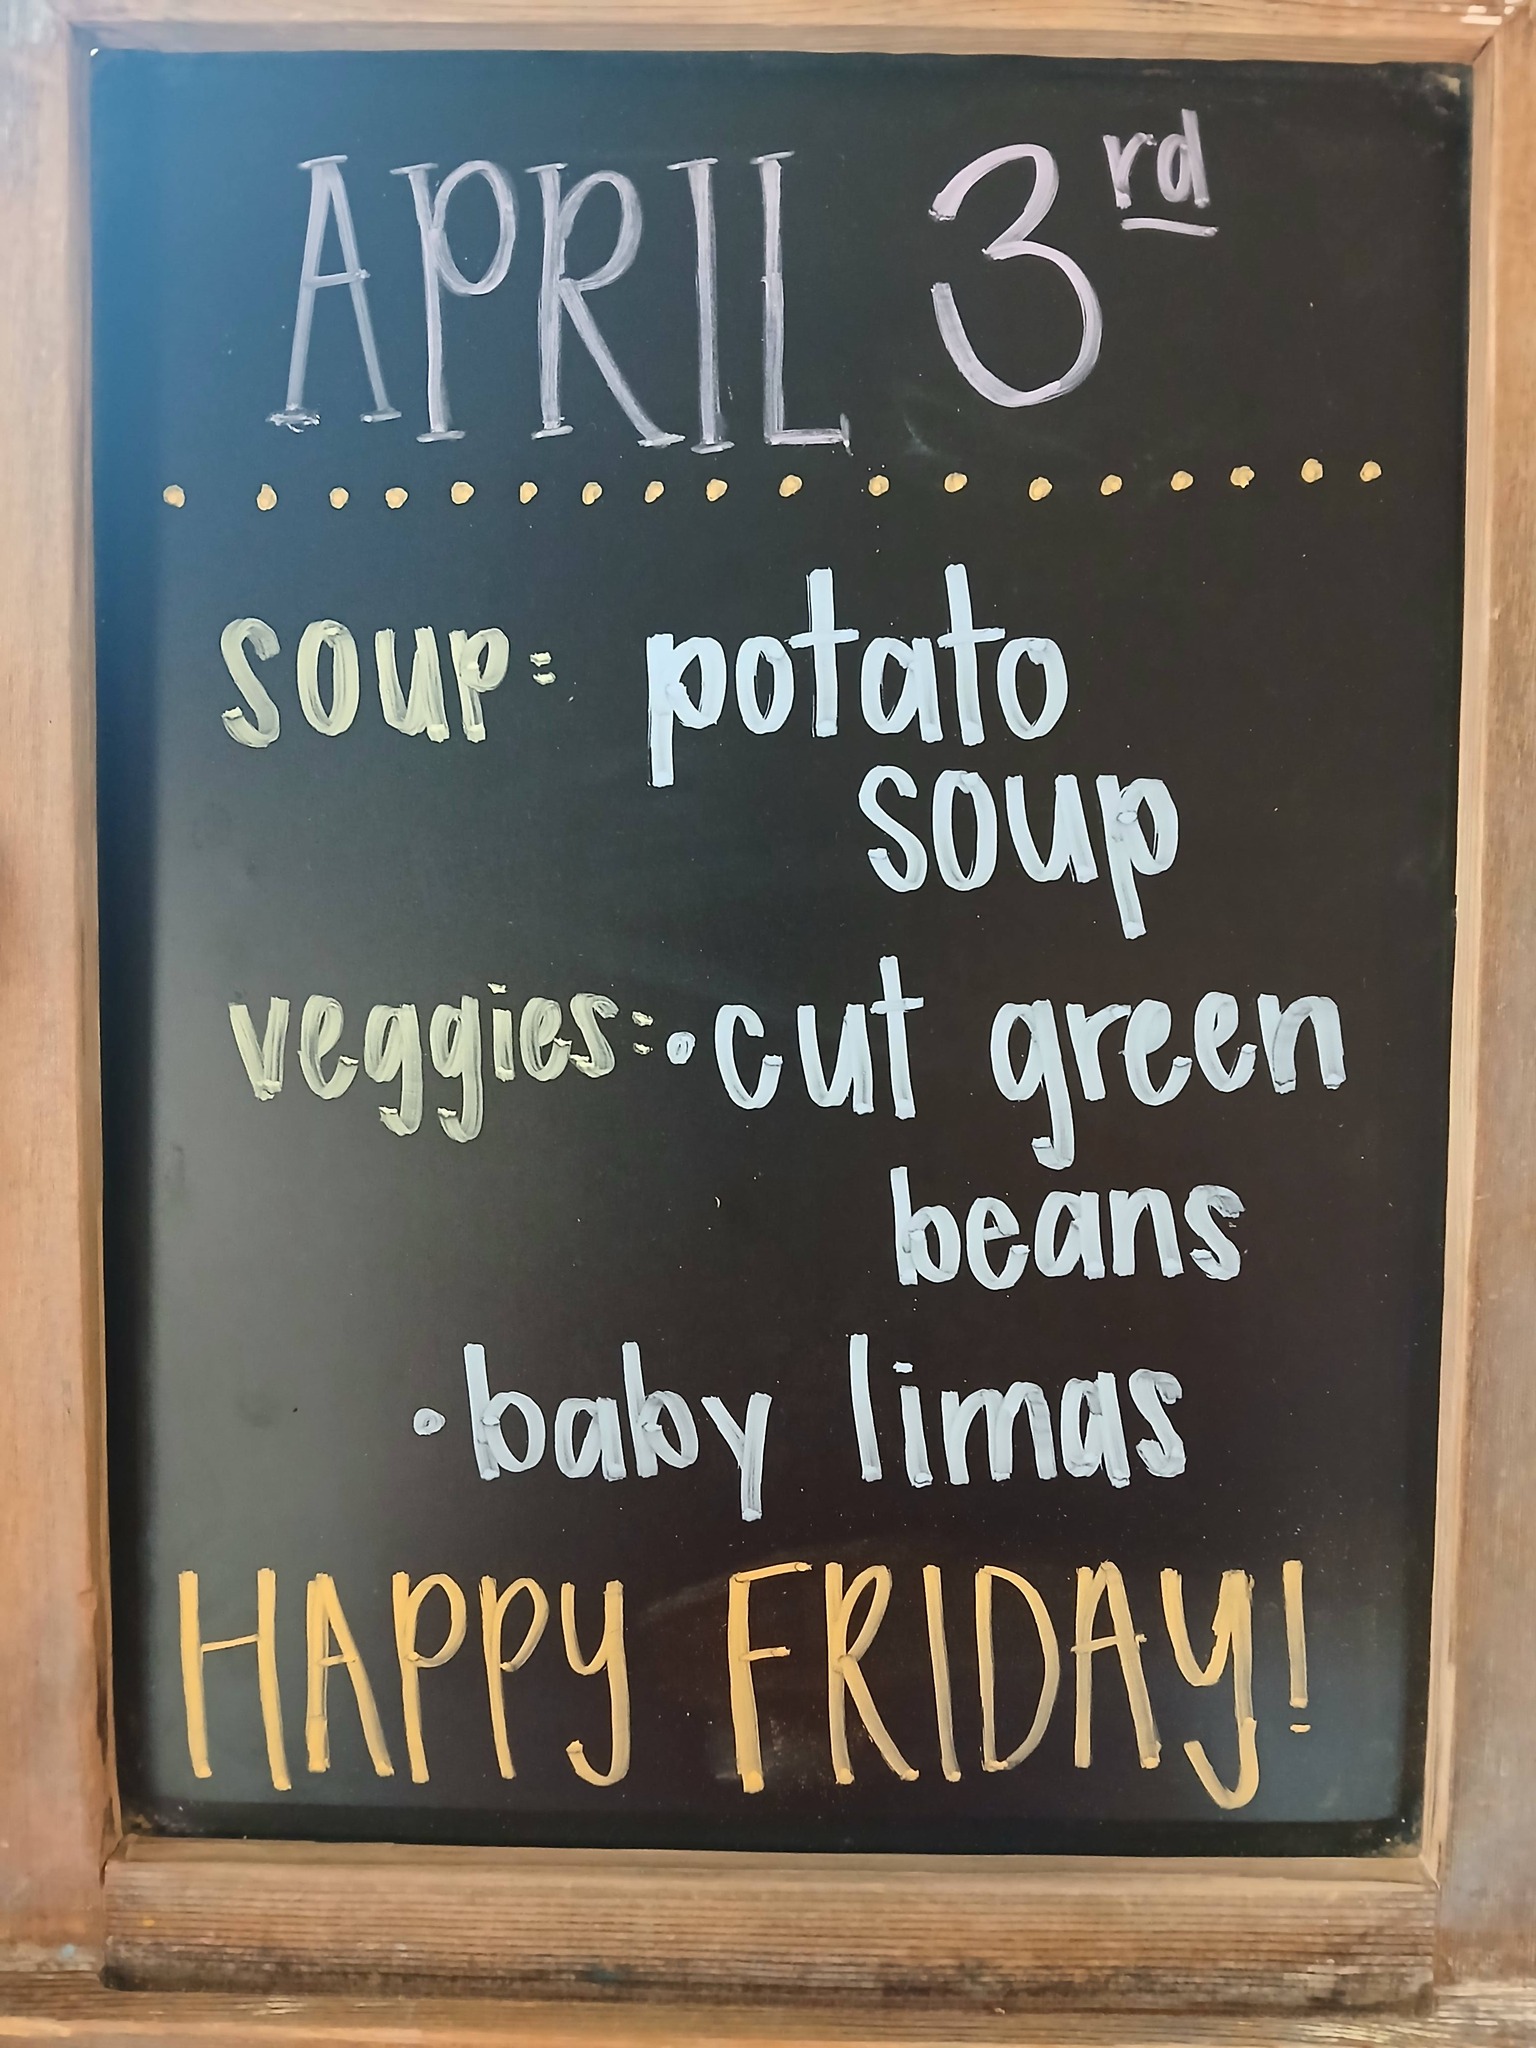 APRIL 3rd
soup: potato
soup
veggies: •cut green
beans
•baby limas
HAPPY FRIDAY!